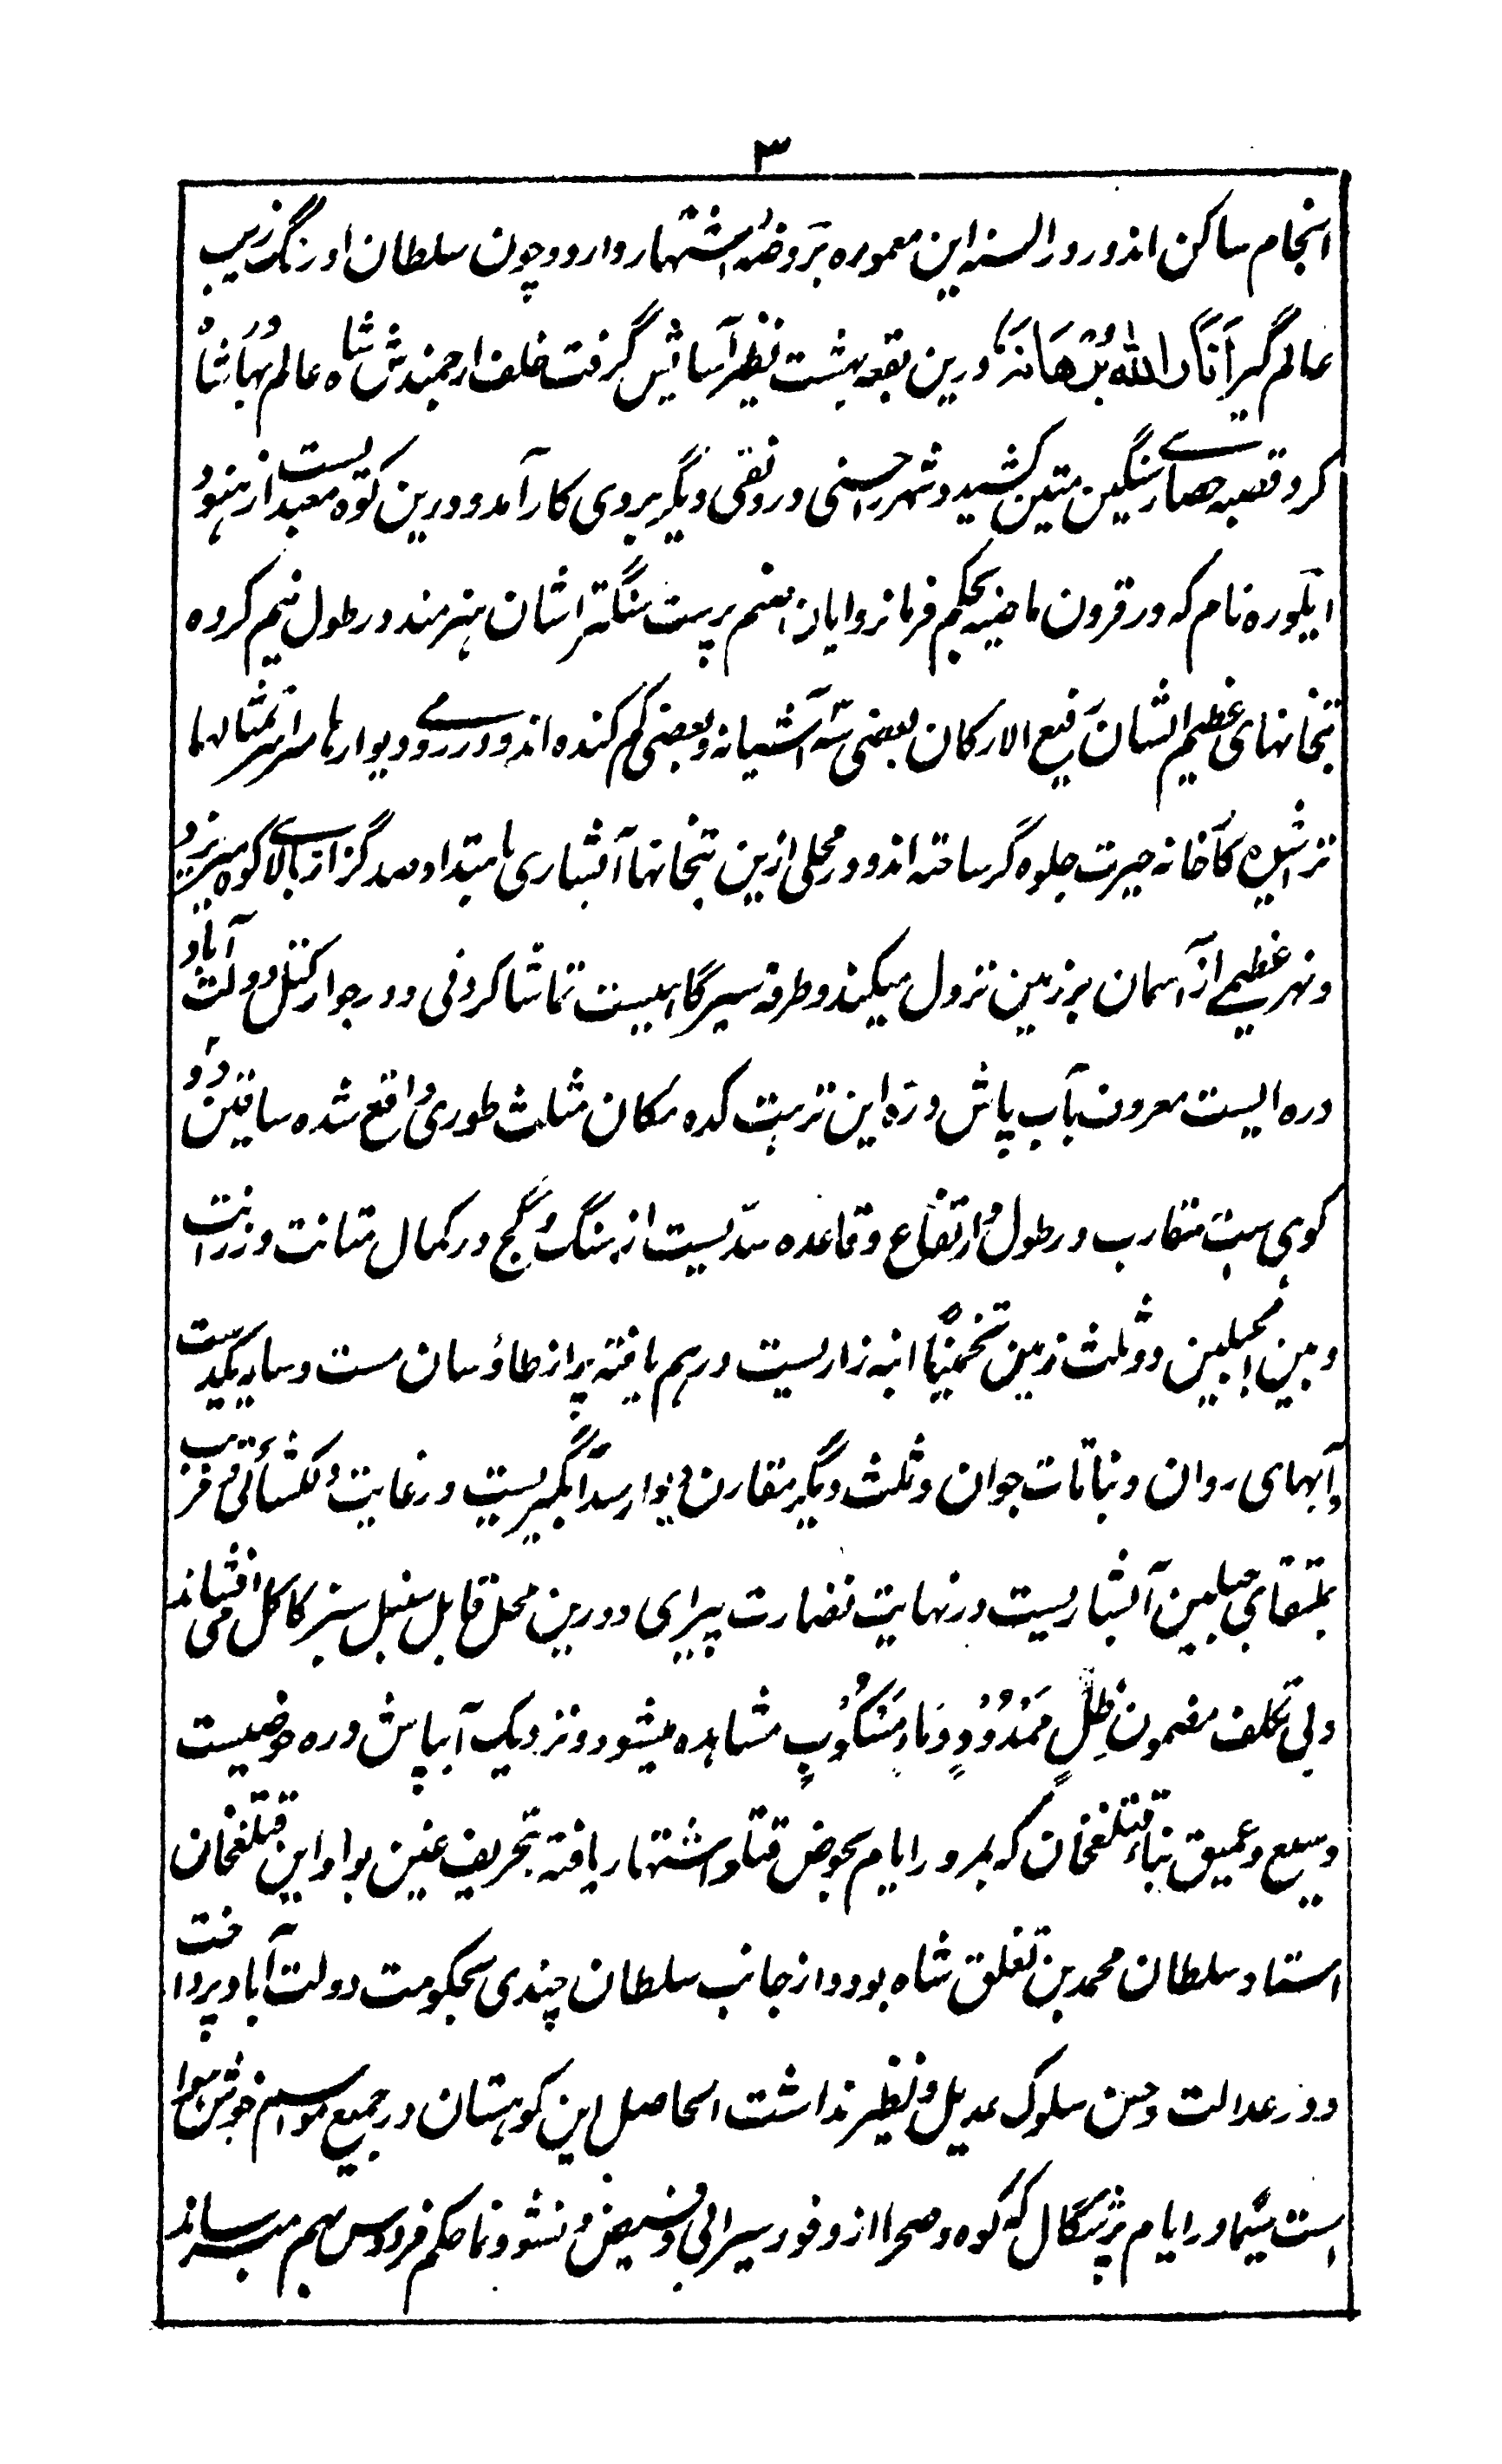 ۳
انجام ساکن اندو در السنه این معموره بروضه اشتهار دارد و چون سلطان اورنگ زیب
عالم گیر اَنَارَ اللهُ بُرْهَانَهُ درین بقعه بهشت نظیر آسایش گرفت خلف ارجمندش شاه عالم بهادر شاه
گرد قصبه حصارے سنگین متین کشید و شهر را حسنی و رونقی دیگر بروی کار آمد و درین کوه معبدیست از هنود
ایلوره نام که در قرون ماضیه بحکم فرمانروایان صنم پرست سنگتراشان هنرمند در طول نیم کروه
بتخانهای عظیم الشان رفیع الارکان بعضی سه آشیانه و بعضی کم کنده اند و در روے دیوارها سراسر تمثالها
تراشیده کارخانه حیرت جلوه گر ساخته اند و در محلی ازین بتخانها آبشاری بامتداد صد گز از بالاے کوه میریزد
و نهر عظیمے از آسمان بر زمین نزول میکند و طرفه سیرگاهیست تماشا کردنی و در جوار کتل دولت آباد
دره ایست معروف بآب پاش دره این نزهت کده مکان مثلث طوری واقع شده ساقین دو
کوهی ست متقارب در طول و ارتفاع و قاعده سدّیست از سنگ و گچ در کمال متانت و رزانت
و بین الجبلین دو ثلث زمین تخمیناً انبه زاریست درهم بافته پر از طاؤسان مست و سایه یکدست
و آبهای روان و نباتات جوان و ثلث دیگر متقارن دیوار سد آبگیریست در غایت دلکشائی و قریب
بملتقای جبلین آبشاریست در نهایت نضارت پیرای و درین محل قابل سنبل سبز کاکل می افشاند
و بی تکلف مضمون ظِلٍّ مَمْدُوْدٍ وَمَاءٍ مَسْكُوْبٍ مشاهده میشود و نزدیک آبپاش دره حوضیست
وسیع و عمیق بناء قتلغخان که بمرور ایام بحوض قتلو اشتهار یافته بتحریف غین بواو این قتلغخان
استاد سلطان محمد بن تغلق شاه بود و از جانب سلطان چندی بحکومت دولت آباد پرداخت
و در عدالت و حسن سلوک عدیل و نظیر نداشت الحاصل این کوهستان در جمیع مواسم خوش هوا
است سیما در ایام برشکال که کوه و صحرا از وفور سیرابی و فیض نشو و نما حکم فردوس بهم میرساند